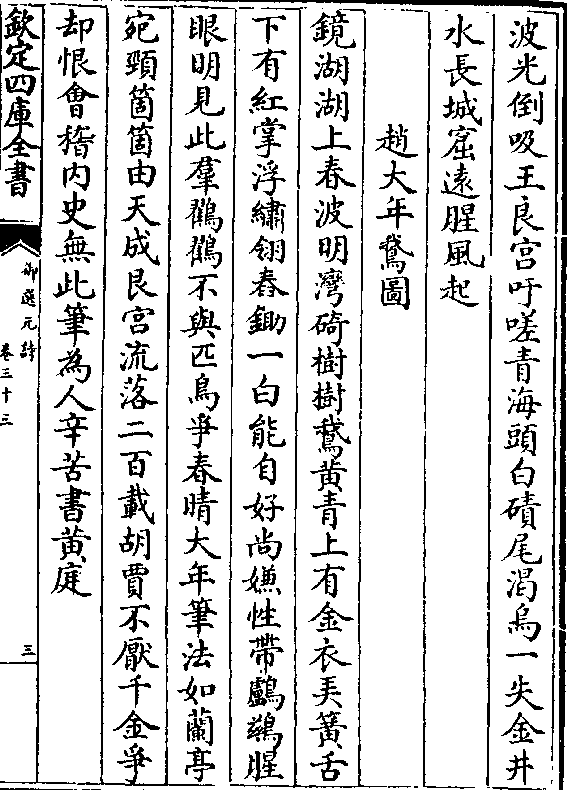 波光倒吸王良宫吁嗟青海頭白磧尾渇烏一失金井
水長城窟逺腥風起
趙大年鵞圖
鏡湖湖上春波明灣碕樹樹鵞黄青上有金衣美簧舌
下有紅掌浮繡翎舂鋤一白能自好尚嫌性帶鸕鷀腥
眼明見此羣鶃鶃不與匹鳥爭春晴大年筆法如蘭亭
宛頸箇箇由天成艮宫流落二百載胡賈不厭千金爭
却恨會稽内史無此筆為人辛苦書黄庭
欽定四庫全書
御選元詩
卷三十三
三